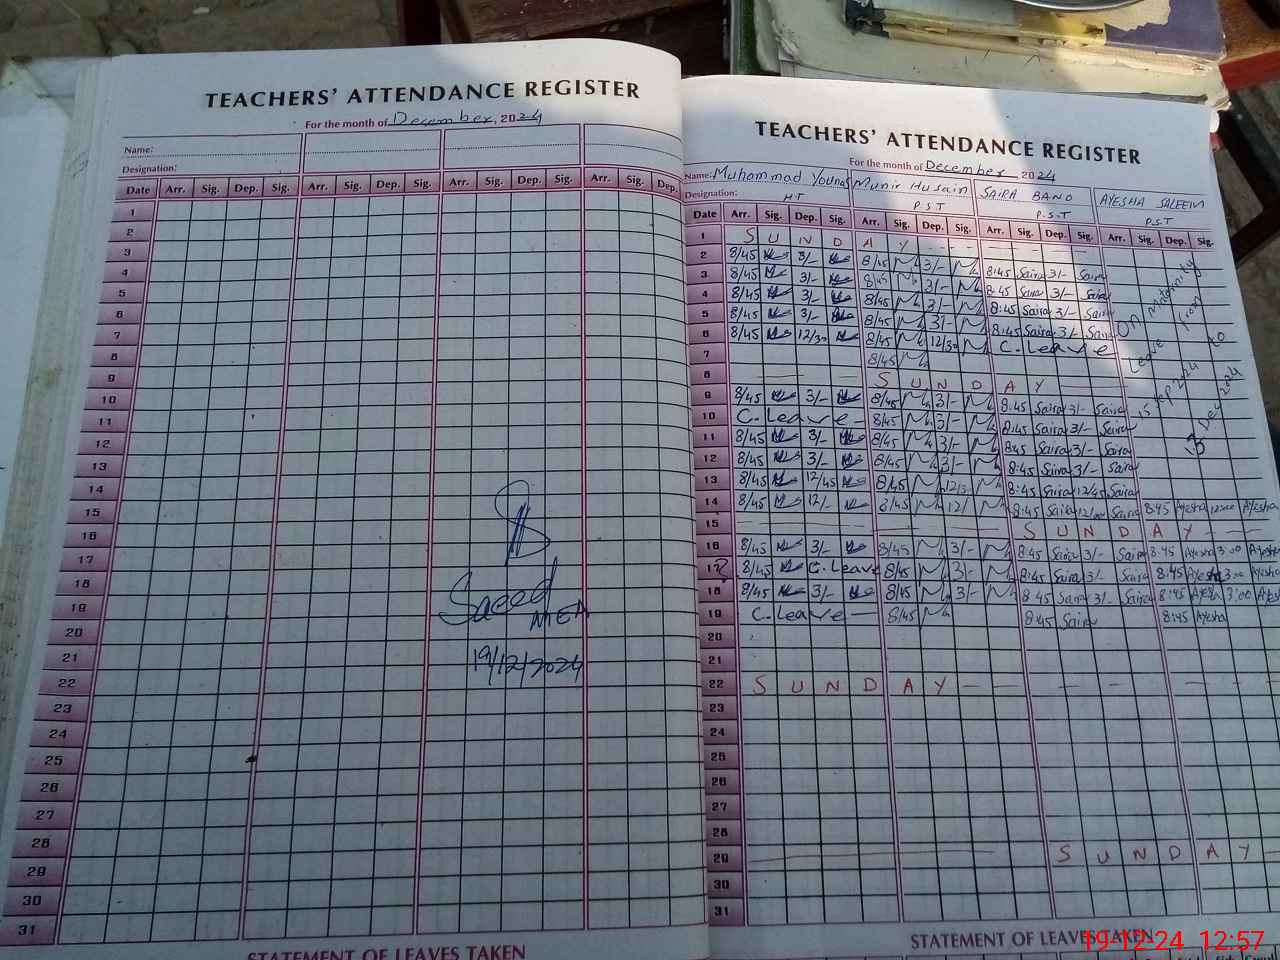 TEACHERS' ATTENDANCE REGISTER
For the month of December, 2024
Name:
Designation:
Date Arr. Sig. Dep. Sig. Arr. Sig. Dep. Sig. Arr. Sig. Dep. Sig. Arr. Sig. Dep.
1
2
3
4
5
6
7
8
9
10
11
12
13
14
15
16
17
18
19
20
21
22
23
24
25
26
27
28
29
30
31
Saeed
MEA
19/12/2024
STATEMENT OF LEAVES TAKEN
TEACHERS' ATTENDANCE REGISTER
For the month of December 2024
Name: Muhammad Younas Munir Husain SAIRA BANO AYESHA SALEEM
Designation: HT PST P.S.T P.S.T
Date Arr. Sig. Dep. Sig. Arr. Sig. Dep. Sig. Arr. Sig. Dep. Sig. Arr. Sig. Dep. Sig.
1 S U N D A Y
2 8/45 3/- 8/45 3/- 8:45 Saira 3/- Saira
3 8/45 3/- 8/45 3/- 8:45 Saira 3/- Saira
4 8/45 3/- 8/45 3/- 8:45 Saira 3/- Saira
5 8/45 3/- 8/45 3/- 8:45 Saira 3/- Saira
6 8/45 12/30 8/45 12/30 C. Leave
7 8/45
8 S U N D A Y
On maternity leave from 15 Sep 2024 to 13 Dec 2024
9 8/45 3/- 8/45 3/- 8:45 Saira 3/- Saira
10 C. Leave 8/45 3/- 8:45 Saira 3/- Saira
11 8/45 3/- 8/45 3/- 8:45 Saira 3/- Saira
12 8/45 3/- 8/45 3/- 8:45 Saira 3/- Saira
13 8/45 12/45 8/45 8:45 Saira 12/45 Saira
14 8/45 12/ 8/45 12/ 8:45 Saira Saira 8:45 Ayesha 12:00 Ayesha
15 S U N D A Y
16 8/45 3/- 8/45 3/- 8:45 Saira 3/- Saira 8:45 Ayesha 3:00 Ayesha
17 8/45 C. Leave 8/45 3/- 8:45 Saira 3/- Saira 8:45 Ayesha 3:00 Ayesha
18 8/45 3/- 8/45 3/- 8:45 Saira 3/- Saira 8:45 Ayesha 3:00 Ayesha
19 C. Leave 8/45 8:45 Saira 8:45 Ayesha
20
21
22 S U N D A Y
23
24
25
26
27
28
29 S U N D A Y
30
31
STATEMENT OF LEAVES TAKEN
19-12-24 12:57